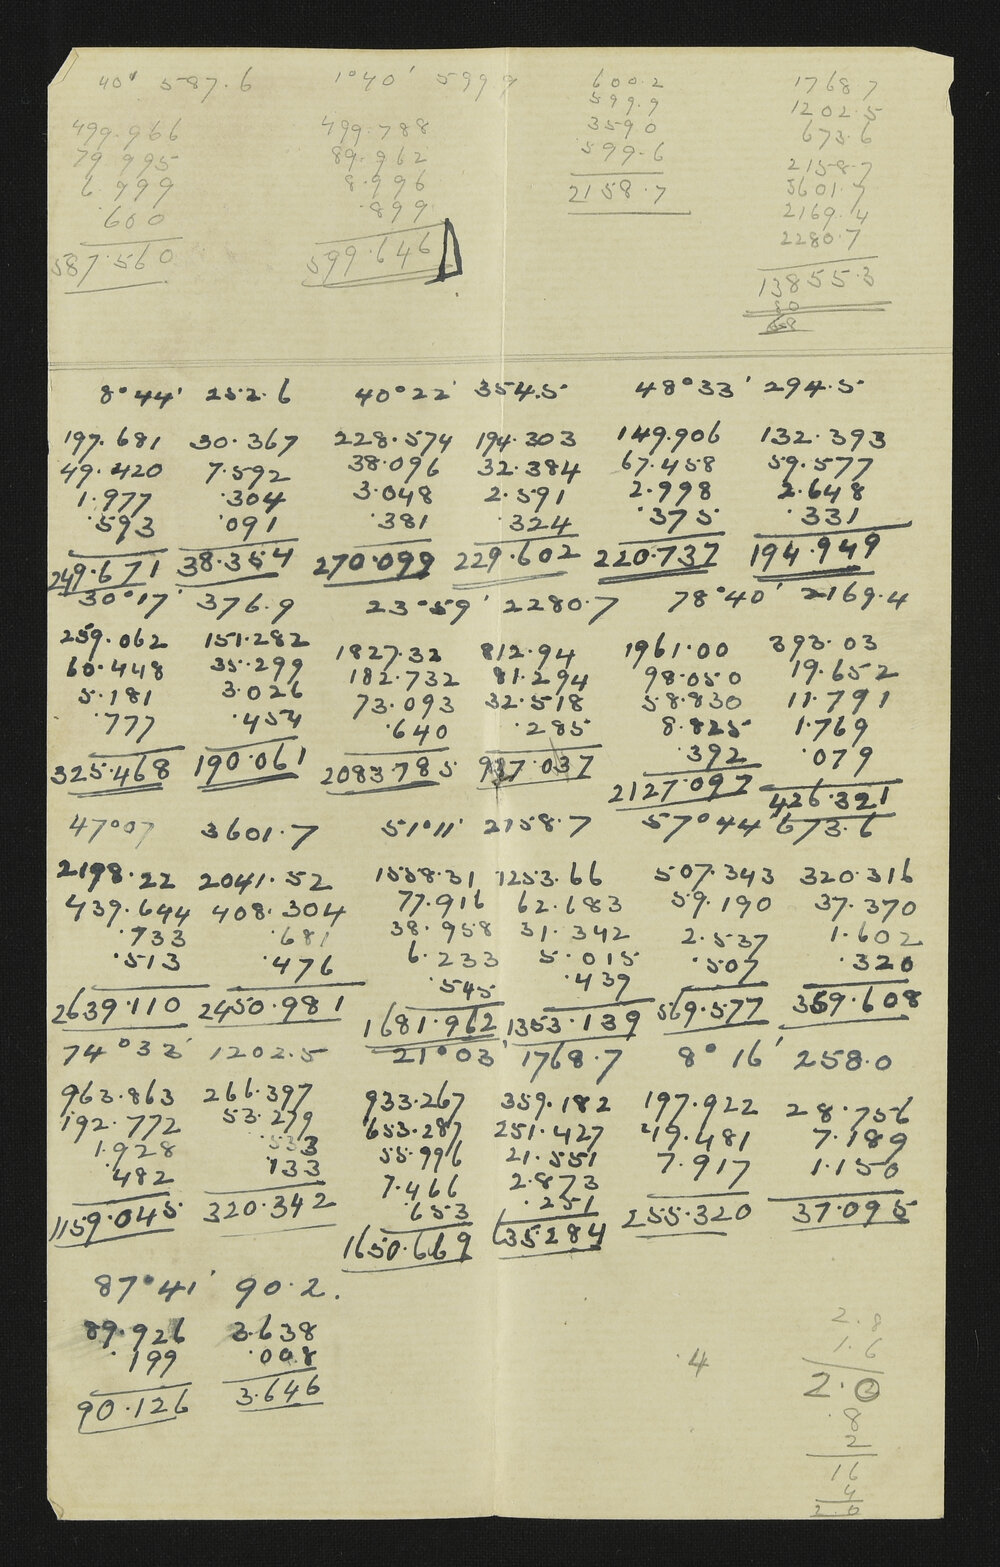 40' 587.6 1°40' 599 9 600.2 1768 7
499.966 499.788 599.9 1202.5
79 995 89.962 3590 673.6
6.999 8.996 599.6 2158.7
.600 .899 2158.7 3601.7
587.560 599.646 2169.4
2280.7
13855.3
80
8°44' 252.6 40°22' 354.5 48°33' 294.5
197.681 30.367 228.574 194.303 149.906 132.393
49.420 7.592 38.096 32.384 67.458 59.577
1.977 .304 3.048 2.591 2.998 2.648
.593 .091 .381 .324 .375 .331
249.671 38.354 270.099 229.602 220.737 194.949
30°17' 376.9 23°59' 2280.7 78°40' 2169.4
259.062 151.282 1827.32 812.94 1961.00 393.03
60.448 35.299 182.732 81.294 98.050 19.652
5.181 3.026 73.093 32.518 58.830 11.791
.777 .454 .640 .285 8.825 1.769
325.468 190.061 2083.785 927.037 .392 .079
2127.097 426.321
47°07 3601.7 51°11' 2158.7 57°44' 673.6
2198.22 2041.52 1558.31 1253.66 507.343 320.316
439.644 408.304 77.916 62.683 59.190 37.370
.733 .681 38.958 31.342 2.537 1.602
.513 .476 6.233 5.015 .507 .320
2639.110 2450.981 .545 .439 569.577 359.608
1681.962 1353.139
74°33' 1202.5 21°03' 1768.7 8°16' 258.0
963.863 266.397 933.267 359.182 197.922 28.756
192.772 53.279 653.287 251.427 49.481 7.189
1.928 .533 55.996 21.551 7.917 1.150
.482 .133 7.466 2.873 255.320 37.095
1159.045 320.342 .653 .251
1650.669 635.284
87°41' 90.2.
89.926 3.638
.199 .008
90.126 3.646
.4
2.8
1.6
2.0
.8
2
16
4
2.0